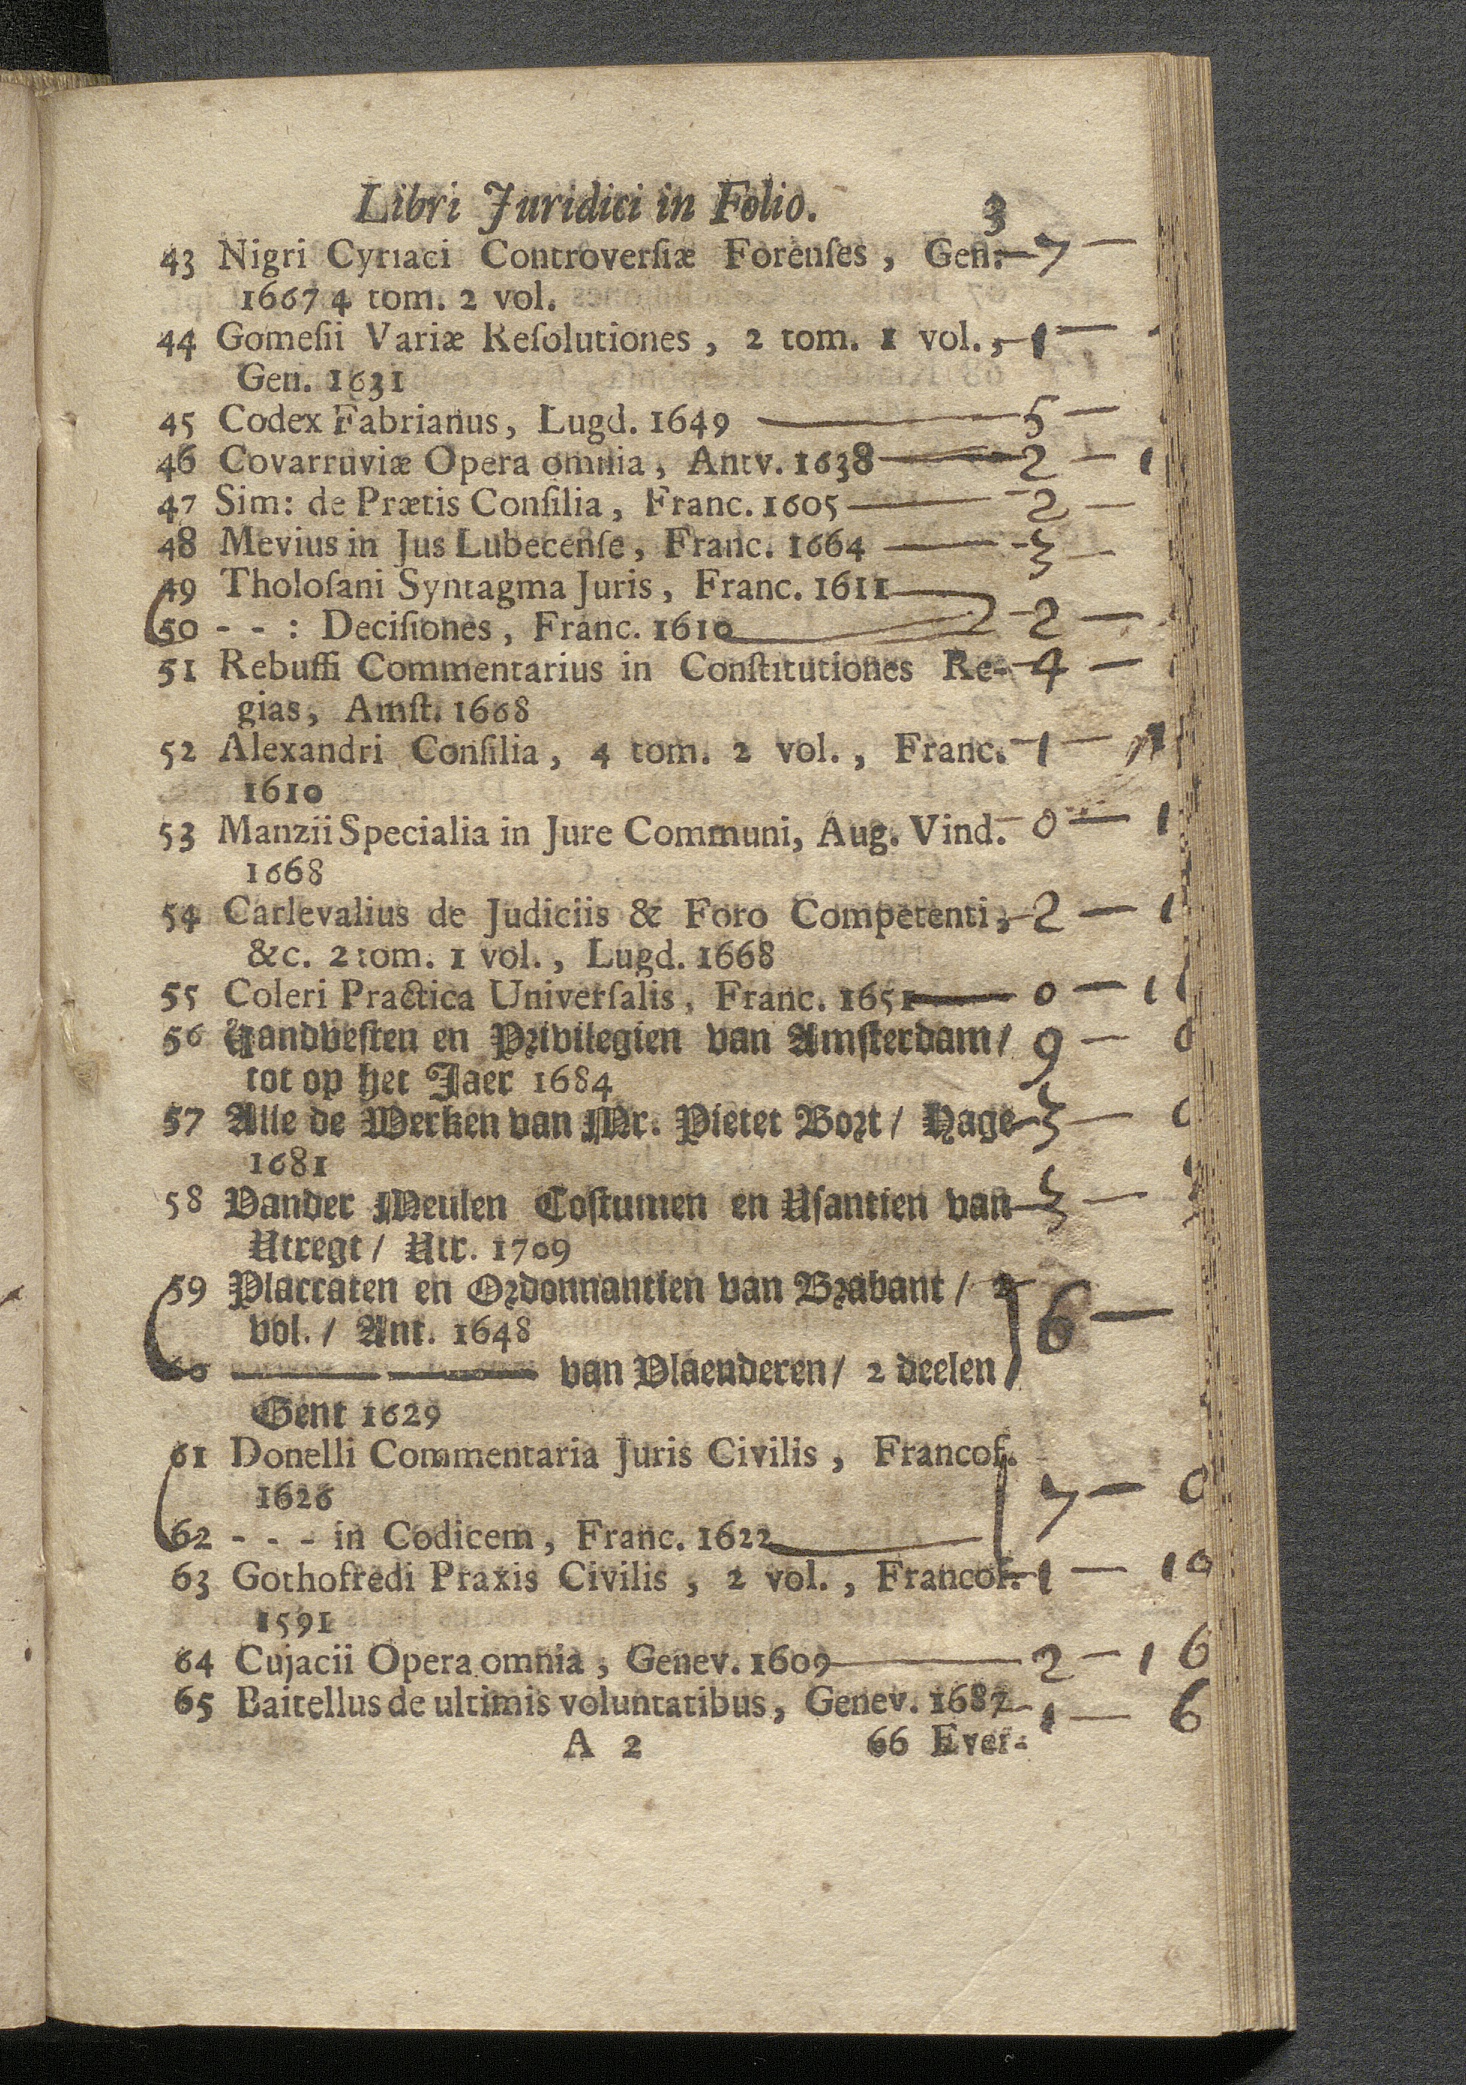 Libri Juridici in Folio. 3
43 Nigri Cyriaci Controversiæ Forenses, Gen. — 7 —
1667 4 tom. 2 vol.
44 Gomesii Variæ Resolutiones, 2 tom. 1 vol., — 1 —
Gen. 1631
45 Codex Fabrianus, Lugd. 1649 — 5 —
46 Covarruviæ Opera omnia, Antv. 1638 — 2 — 1
47 Sim: de Prætis Consilia, Franc. 1605 — 2 —
48 Mevius in Jus Lubecense, Franc. 1664 — 3 —
49 Tholosani Syntagma Juris, Franc. 1611
50 - - : Decisiones, Franc. 1610 — 2 —
51 Rebuffi Commentarius in Constitutiones Re- — 4 —
gias, Amst. 1668
52 Alexandri Consilia, 4 tom. 2 vol., Franc. — 1 —
1610
53 Manzii Specialia in Jure Communi, Aug. Vind. — 0 — 1
1668
54 Carlevalius de Judiciis & Foro Competenti, — 2 — 1
&c. 2 tom. 1 vol., Lugd. 1668
55 Coleri Practica Universalis, Franc. 1651 — 0 — 1
56 Handvesten en Privilegien van Amsterdam / 9 — 0
tot op het Jaer 1684
57 Alle de Werken van Mr. Pieter Bort / Hage — 3 — 0
1681
58 Vander Meulen Costumen en Usantien van — 3 —
Utregt / Utr. 1709
59 Placcaten en Ordonnantien van Brabant / 2 6 —
vol. / Ant. 1648
60 —— —— van Vlaenderen / 2 deelen /
Gent 1629
61 Donelli Commentaria Juris Civilis, Francof.
1626 7 — 0
62 - - - in Codicem, Franc. 1622
63 Gothofredi Praxis Civilis, 2 vol., Francof. — 1 — 10
1591
64 Cujacii Opera omnia, Genev. 1609 — 2 — 16
65 Baitellus de ultimis voluntatibus, Genev. 1687 — 1 — 6
A 2 66 Ever-